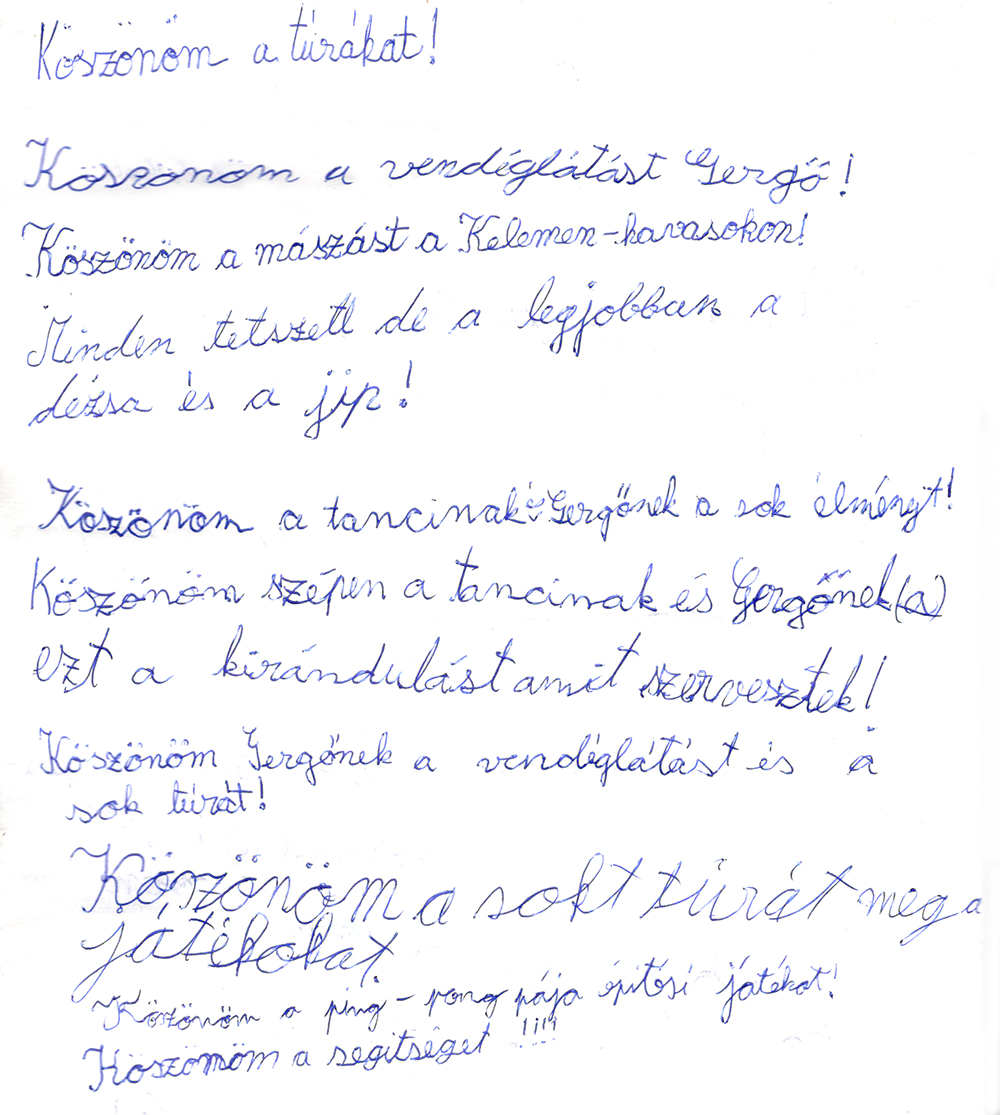 Köszönöm a túrákat!
Köszönöm a vendéglátást Gergő!
Köszönöm a mászást a Kelemen-havasokon!
Minden tetszett de a legjobban a
dézsa és a jip!
Köszönöm a tancinak és Gergőnek a sok élményt!
Köszönöm szépen a tancinak és Gergőnek (a)
ezt a kirándulást amit szervesztek!
Köszönöm Gergőnek a vendéglátást és a
sok túrát!
Köszönöm a sokt túrát meg a
játékokat!
Köszönöm a ping-pong pája építési játékat!
Köszömöm a segitséget !!!!